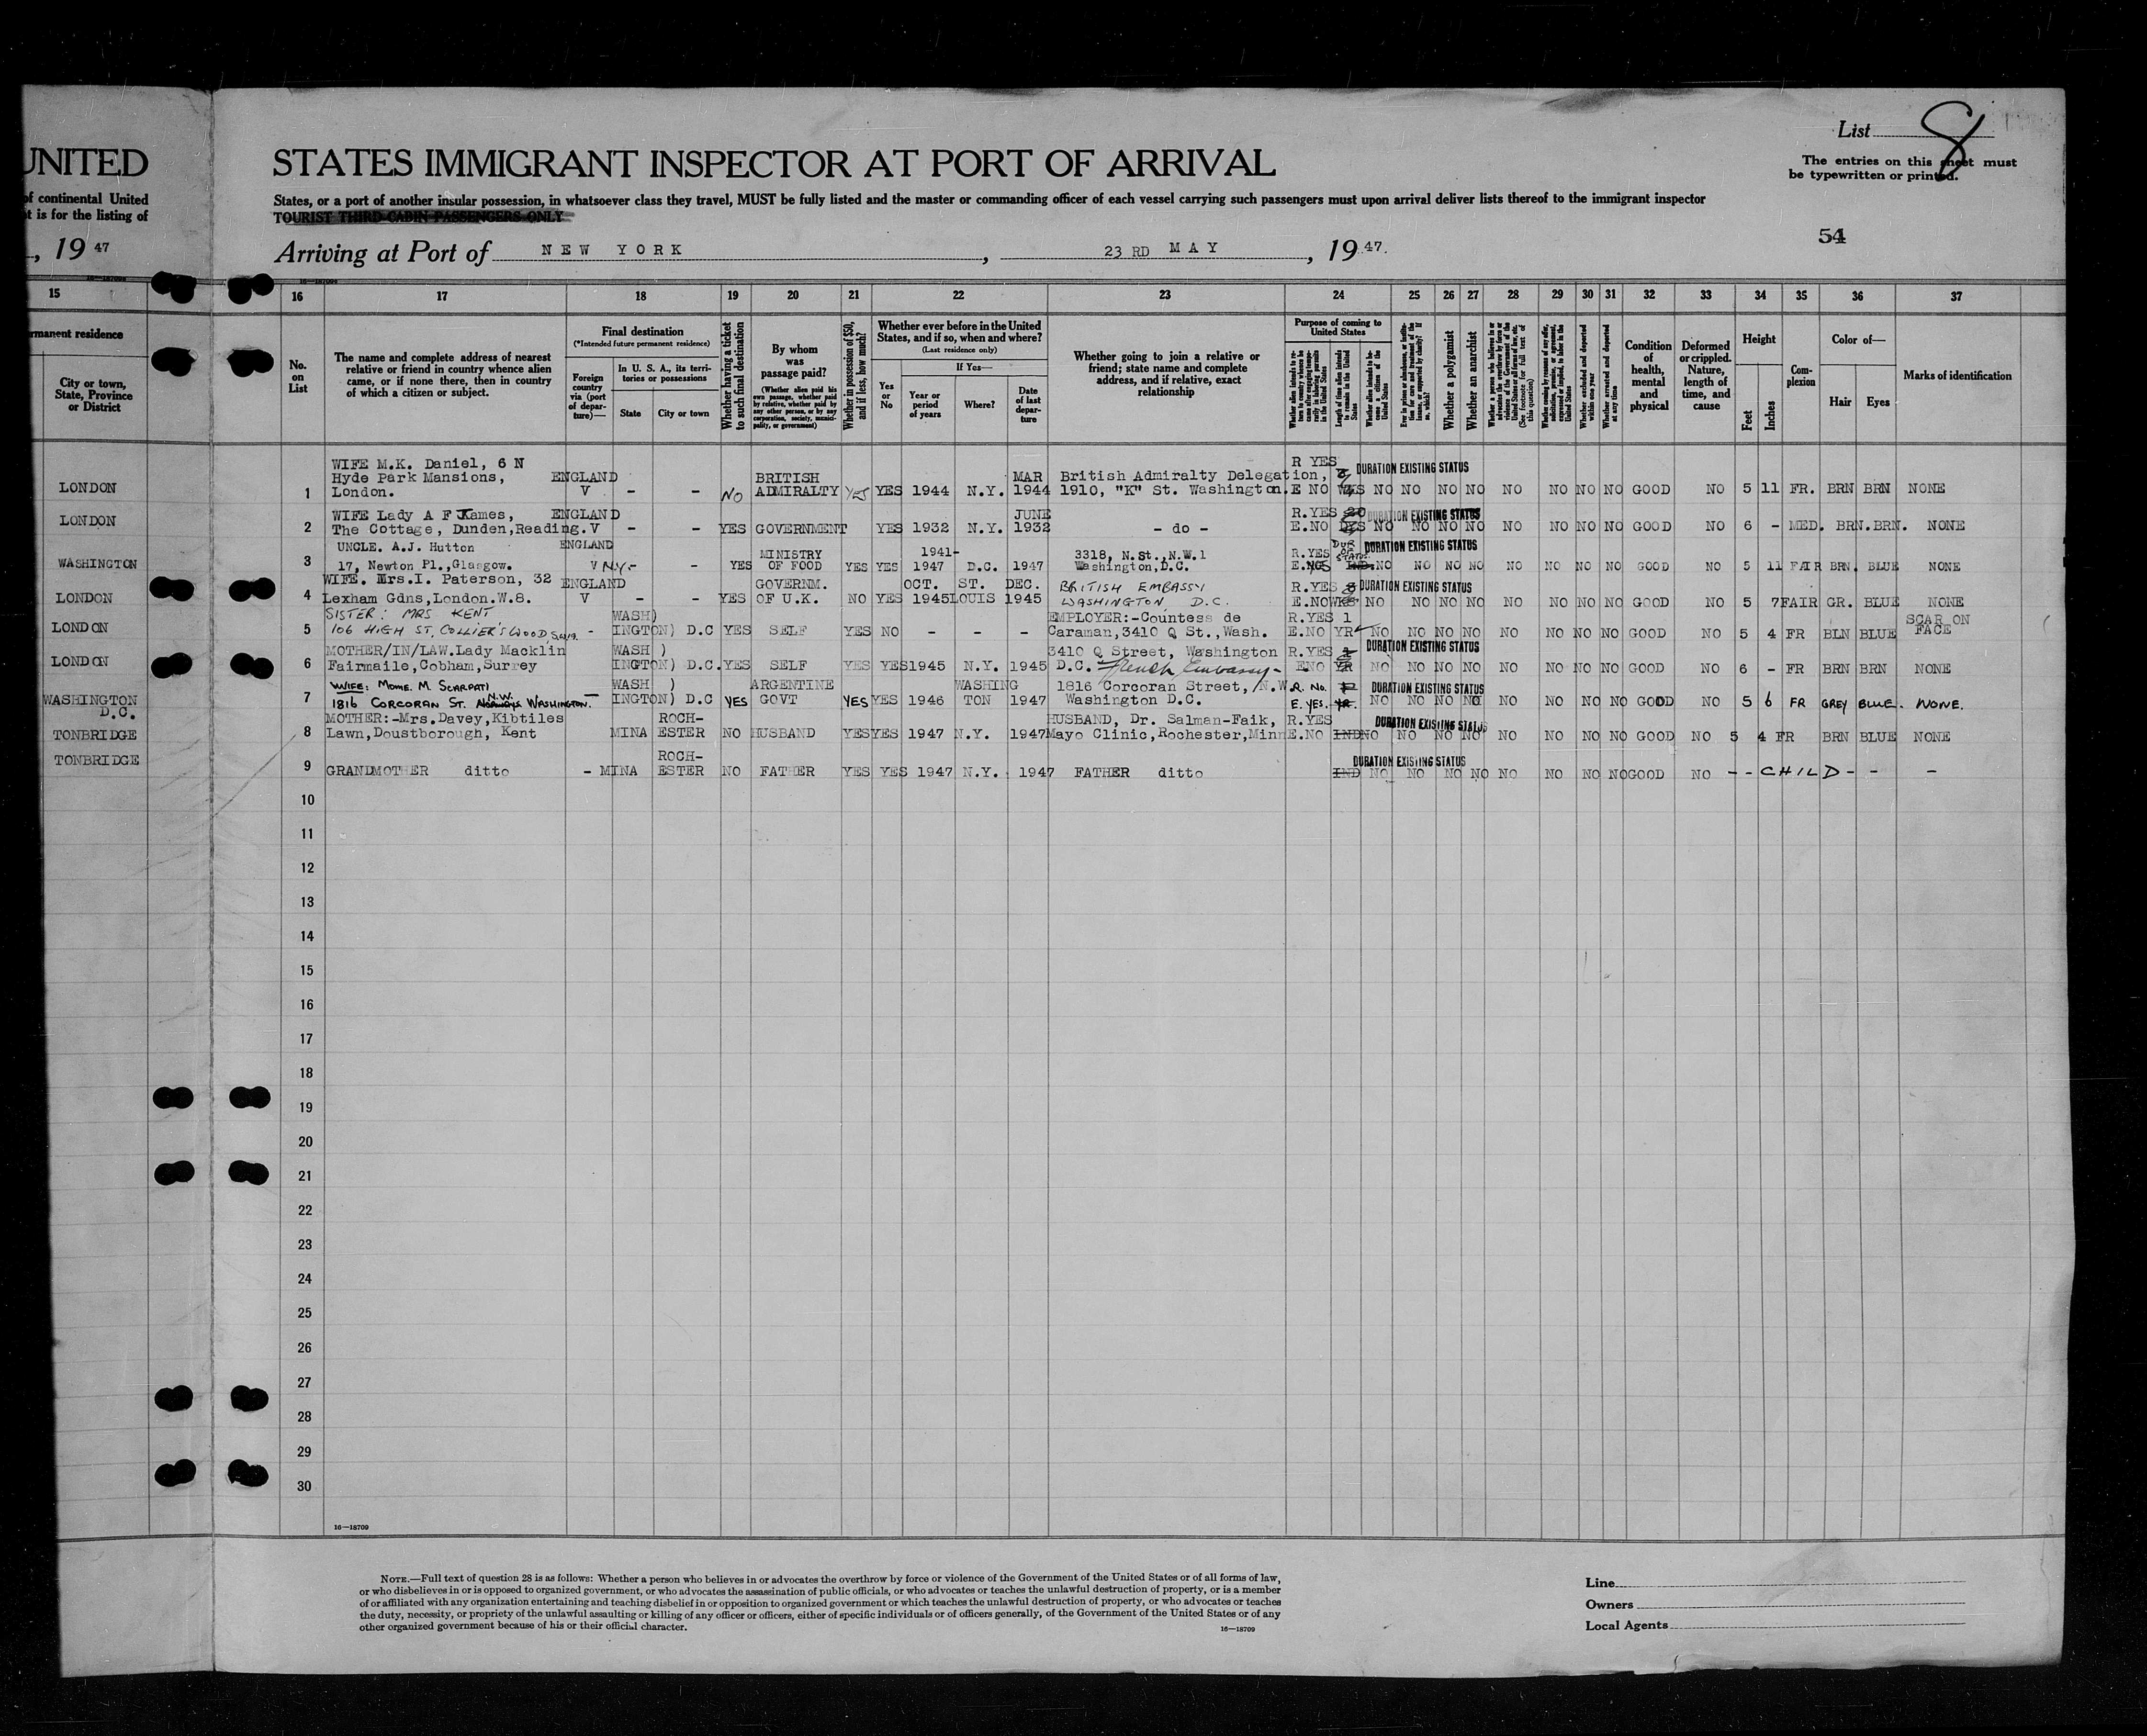 List 8
UNITED STATES IMMIGRANT INSPECTOR AT PORT OF ARRIVAL
The entries on this sheet must
be typewritten or printed.
of continental United States, or a port of another insular possession, in whatsoever class they travel, MUST be fully listed and the master or commanding officer of each vessel carrying such passengers must upon arrival deliver lists thereof to the immigrant inspector
t is for the listing of TOURIST THIRD-CABIN PASSENGERS ONLY
, 19 47 Arriving at Port of NEW YORK, 23 RD MAY, 19 47.
54
16—18709
15 16 17 18 19 20 21 22 23 24 25 26 27 28 29 30 31 32 33 34 35 36 37
rmanent residence
City or town,
State, Province
or District
No.
on
List
The name and complete address of nearest
relative or friend in country whence alien
came, or if none there, then in country
of which a citizen or subject.
Final destination
(*Intended future permanent residence)
Foreign
country
via (port
of depar-
ture)—
In U. S. A., its terri-
tories or possessions
State
City or town
Whether having a ticket
to such final destination
By whom
was
passage paid?
(Whether alien paid his
own passage, whether paid
by relative, whether paid by
any other person, or by any
corporation, society, munici-
pality, or government)
Whether in possession of $50,
and if less, how much?
Whether ever before in the United
States, and if so, when and where?
(Last residence only)
If Yes—
Yes
or
No
Year or
period
of years
Where?
Date
of last
depar-
ture
Whether going to join a relative or
friend; state name and complete
address, and if relative, exact
relationship
Purpose of coming to
United States
Length of time alien intends
to remain in the United
States
Whether alien intends to be-
come a citizen of the
United States
Whether a polygamist
Whether an anarchist
Whether arrested and deported
at any time
Condition
of
health,
mental
and
physical
Deformed
or crippled.
Nature,
length of
time, and
cause
Height
Feet
Inches
Com-
plexion
Color of—
Hair
Eyes
Marks of identification
WIFE M.K. Daniel, 6 N R YES
Hyde Park Mansions, ENGLAND BRITISH MAR British Admiralty Delegation, DURATION EXISTING STATUS
LONDON 1 London. V - - NO ADMIRALTY YES YES 1944 N.Y. 1944 1910, "K" St. Washington. E NO NO NO NO NO NO NO NO NO GOOD NO 5 11 FR. BRN BRN NONE
WIFE Lady A F James, ENGLAND JUNE R.YES DURATION EXISTING STATUS
LONDON 2 The Cottage, Dunden, Reading. V - - YES GOVERNMENT YES 1932 N.Y. 1932 - do - E.NO NO NO NO NO NO NO NO NO GOOD NO 6 - MED. BRN. BRN. NONE
UNCLE. A.J. Hutton ENGLAND MINISTRY 1941- 3318, N.St., N.W.1 DUR OF STATUS DURATION EXISTING STATUS
WASHINGTON 3 17, Newton Pl., Glasgow. V N.Y. - - YES OF FOOD YES YES 1947 D.C. 1947 Washington, D.C. R.YES E.YES IND. NO NO NO NO NO NO NO NO GOOD NO 5 11 FAIR BRN. BLUE NONE
WIFE. Mrs.I. Paterson, 32 ENGLAND GOVERNM. OCT. ST. DEC. BRITISH EMBASSY R.YES DURATION EXISTING STATUS
LONDON 4 Lexham Gdns, London.W.8. V - - YES OF U.K. NO YES 1945 LOUIS 1945 WASHINGTON, D.C. E.NO WKS NO NO NO NO NO NO NO NO GOOD NO 5 7 FAIR GR. BLUE NONE
SISTER: MRS KENT WASH) EMPLOYER:-Countess de R.YES 1 SCAR ON
LONDON 5 106 HIGH ST, COLLIER'S WOOD, S.W.19. - INGTON) D.C YES SELF YES NO - - - Caraman, 3410 Q St., Wash. E.NO YR NO NO NO NO NO NO NO NO GOOD NO 5 4 FR BLN BLUE FACE
MOTHER/IN/LAW. Lady Macklin WASH ) 3410 Q Street, Washington R.YES DURATION EXISTING STATUS
LONDON 6 Fairmaile, Cobham, Surrey INGTON) D.C. YES SELF YES YES 1945 N.Y. 1945 D.C. French Embassy - E.NO YR NO NO NO NO NO NO NO NO GOOD NO 6 - FR BRN BRN NONE
WIFE: Mome. M SCARPATI WASH ) ARGENTINE WASHING 1816 Corcoran Street, N.W. R. No. DURATION EXISTING STATUS
WASHINGTON D.C. 7 1816 CORCORAN ST. N.W. WASHINGTON. — INGTON) D.C YES GOVT YES YES 1946 TON 1947 Washington D.C. E. YES. YR. NO NO NO NO NO NO NO NO GOOD NO 5 6 FR GREY BLUE. NONE.
MOTHER:-Mrs.Davey, Kibtiles ROCH- HUSBAND, Dr. Salman-Faik, R.YES DURATION EXISTING STATUS
TONBRIDGE 8 Lawn, Doustborough, Kent MINA ESTER NO HUSBAND YES YES 1947 N.Y. 1947 Mayo Clinic, Rochester, Minn E.NO IND NO NO NO NO NO NO NO NO GOOD NO 5 4 FR BRN BLUE NONE
ROCH- DURATION EXISTING STATUS
TONBRIDGE 9 GRANDMOTHER ditto - MINA ESTER NO FATHER YES YES 1947 N.Y. - 1947 FATHER ditto IND NO NO NO NO NO NO NO NO GOOD NO - - CHILD - - -
10
11
12
13
14
15
16
17
18
19
20
21
22
23
24
25
26
27
28
29
30
16—18709
NOTE.—Full text of question 28 is as follows: Whether a person who believes in or advocates the overthrow by force or violence of the Government of the United States or of all forms of law,
or who disbelieves in or is opposed to organized government, or who advocates the assassination of public officials, or who advocates or teaches the unlawful destruction of property, or is a member
of or affiliated with any organization entertaining and teaching disbelief in or opposition to organized government or which teaches the unlawful destruction of property, or who advocates or teaches
the duty, necessity, or propriety of the unlawful assaulting or killing of any officer or officers, either of specific individuals or of officers generally, of the Government of the United States or of any
other organized government because of his or their official character.
16—18709
Line
Owners
Local Agents